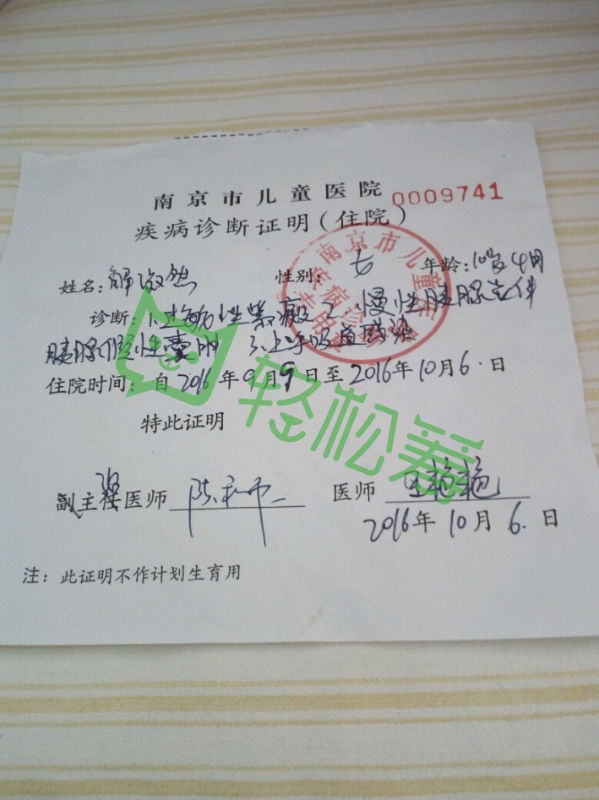 南京市儿童医院 0009741
疾病诊断证明(住院)
姓名: 解 性别: 女 年龄: 10岁4月
诊断: 1.过敏性紫癜 2.慢性胰腺炎伴
胰腺假性囊肿 3.上呼吸道感染
住院时间: 自 2016 年 9 月 9 日至 2016 年 10 月 6 日
特此证明
副主任医师 医师 王艳艳
2016 年 10 月 6 日
注: 此证明不作计划生育用
南京市儿童医院
轻松筹